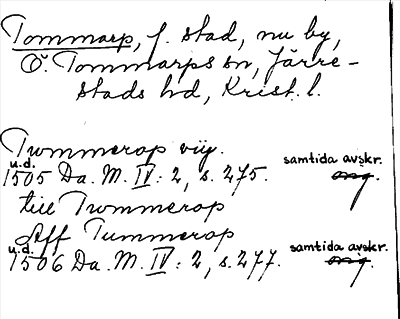 Tommarp, f. stad, nu by,
Ö. Tommarps sn, Järre-
stads hd, Krist. l.
Twmmerop viij.
u.d. samtida avskr.
1505 Da. M. IV: 2, s. 275. orig.
till Twmmerop
Aff Tummerop
u.d. samtida avskr.
1506 Da. M. IV: 2, s. 277. orig.